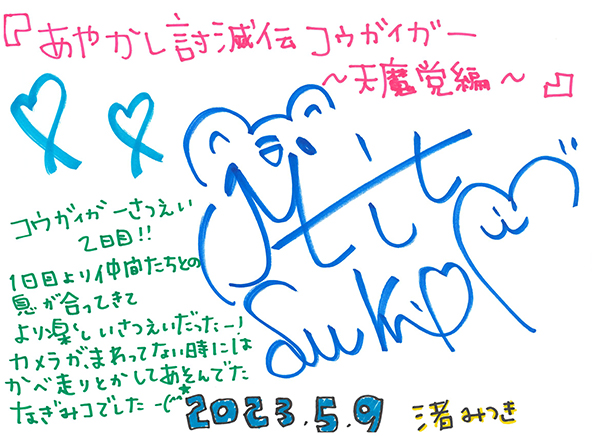 『あやかし討滅伝コウガイガー
～天魔党編～』
Mitsuki
コウガイガーさつえい
2日目!!
1日目より仲間たちとの
息が合ってきて
より楽しいさつえいだったー♪
カメラがまわってない時には
かべ走りとかしてあそんでた
なぎみつコでしたー
2023.5.9 渚みつき